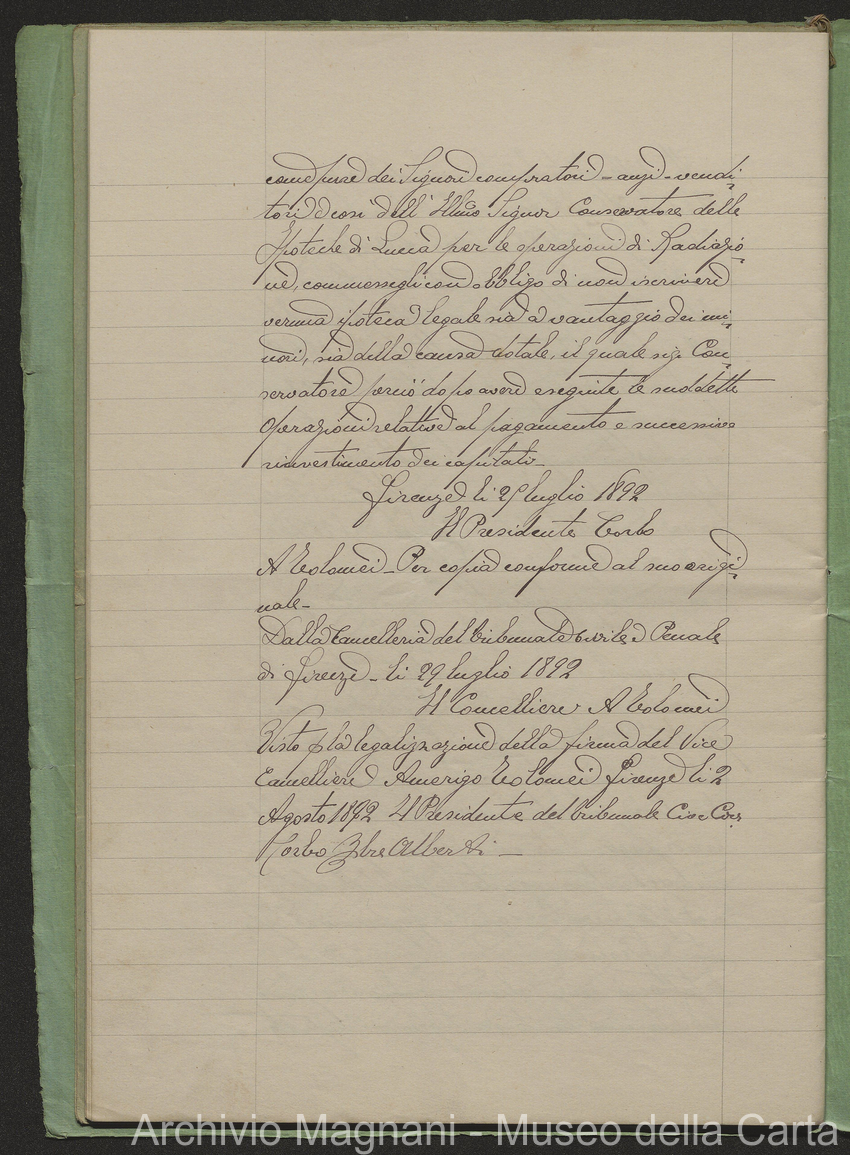 come pure dei Signori compratori = anzi = vendi=
tori e così dell' Illmo Signor Conservatore delle
Ipoteche di Lucca per le operazioni di Radiazio=
ne, commessegli con obbligo di non iscrivere
veruna ipoteca legale sia a vantaggio dei mi=
nori, sia della causa dotale, il quale sig. Con=
servatore perciò dopo avere eseguite le suddette
Operazioni relative al pagamento e successivo
rinvestimento dei capitali_
Firenze li 29 luglio 1892
Il Presidente Corbo
A Tolomei _ Per copia conforme al suo origi=
nale_
Dalla Cancelleria del tribunale Civile e Penale
di Firenze _ li 29 luglio 1892
Il Cancelliere A Tolomei
Visto p la legalizzazione della firma del Vice
Cancelliere Amerigo Tolomei Firenze li 2
Agosto 1892 Il Presidente del tribunale Civ e Cor.
Corbo Alberti _
Archivio Magnani - Museo della Carta